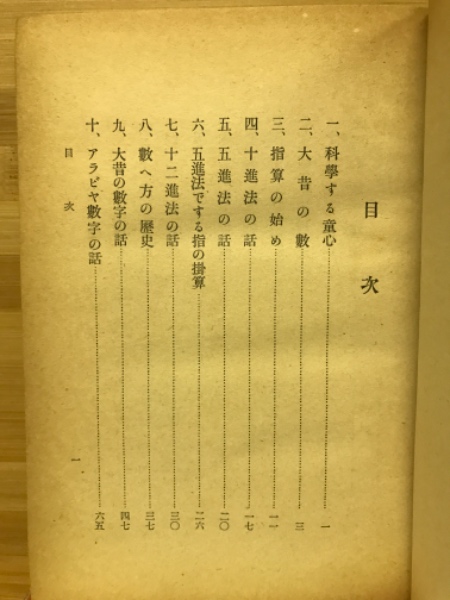 目次
一、科學する童心…一
二、大昔の數…三
三、指算の始め…一一
四、十進法の話…一七
五、五進法の話…二〇
六、五進法でする指の掛算…二六
七、十二進法の話…三〇
八、數へ方の歷史…三七
九、大昔の數字の話…四七
十、アラビヤ數字の話…六五
目次
一